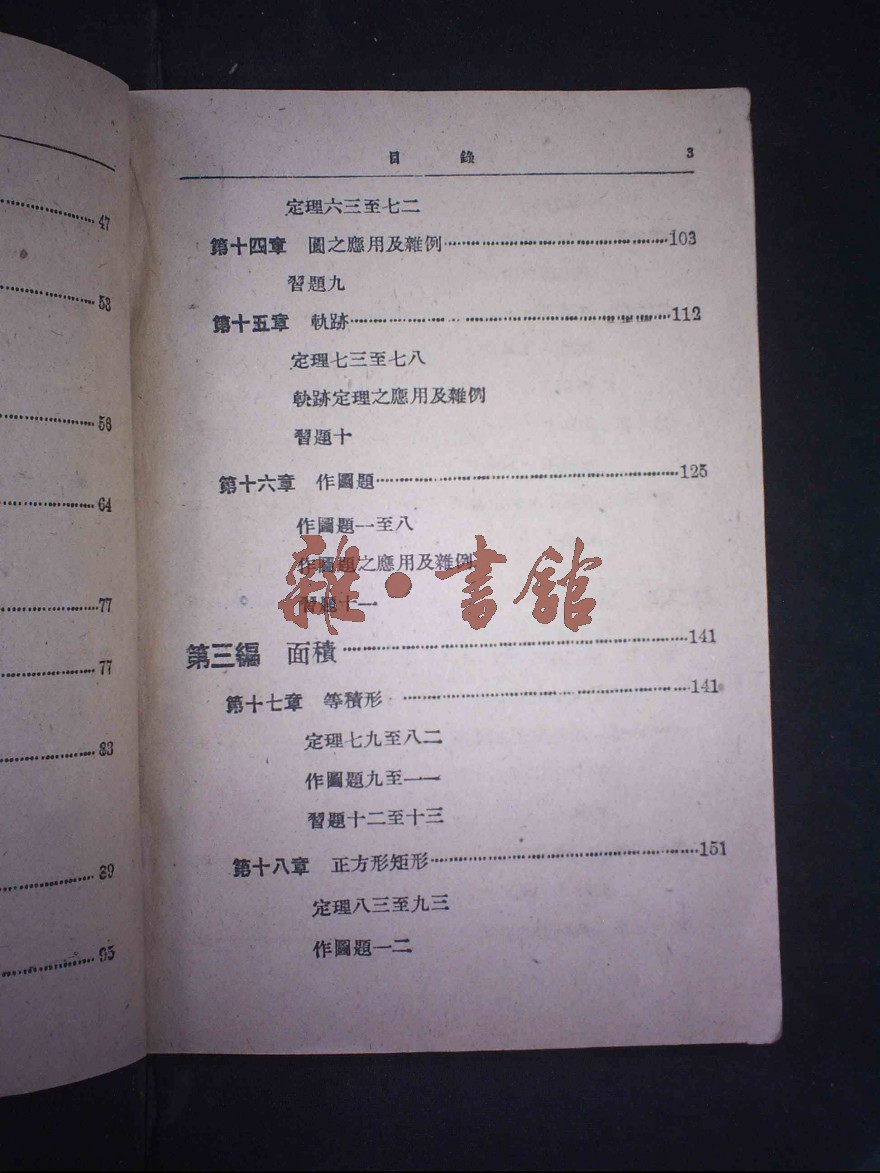 47
53
56
64
77
77
83
89
95
目錄 3
定理六三至七二
第十四章 圓之應用及雜例 103
習題九
第十五章 軌跡 112
定理七三至七八
軌跡定理之應用及雜例
習題十
第十六章 作圖題 125
作圖題一至八
作圖題之應用及雜例
習題十一
雜·書館
第三編 面積 141
第十七章 等積形 141
定理七九至八二
作圖題九至一一
習題十二至十三
第十八章 正方形矩形 151
定理八三至九三
作圖題一二